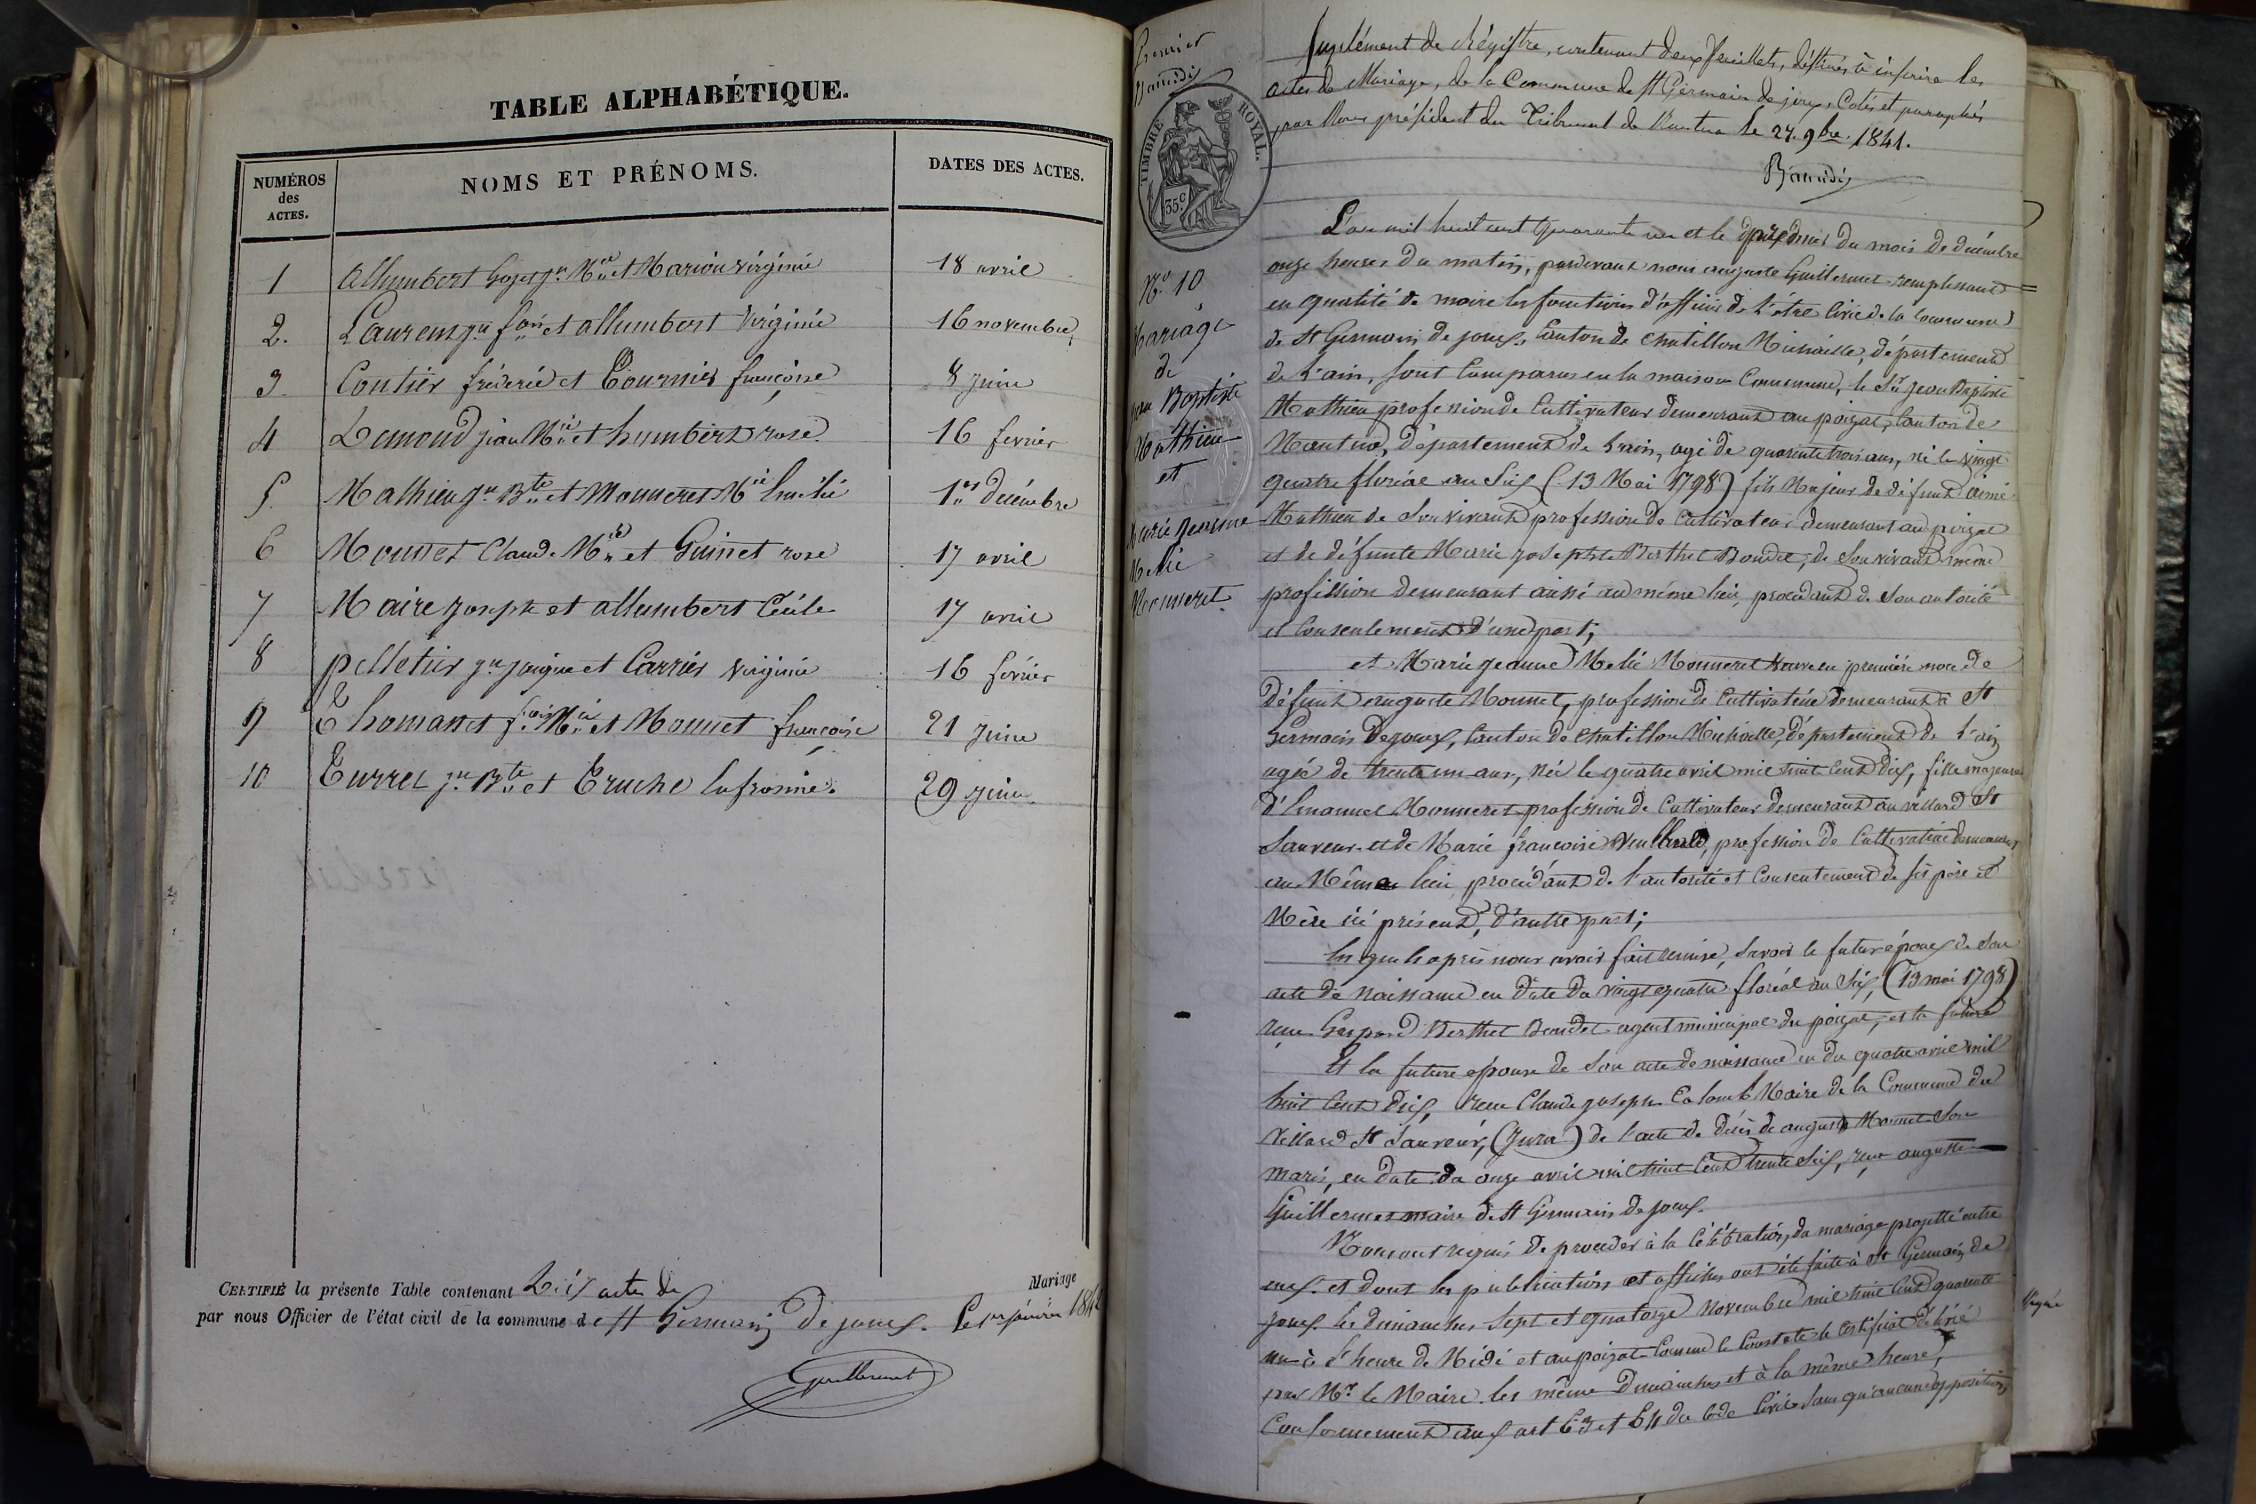 TABLE ALPHABÉTIQUE.
NUMÉROS des ACTES.
NOMS ET PRÉNOMS.
DATES DES ACTES.
1 allumbert et Marion virginie 18 avril
2. Laurent jn fois et allumbert virginie 16 novembre
3 Contier fréderic et Tournier françoise 8 juin
4 Lemond jean Mie et humbert rose 16 fevrier
5. Mathieu jn Bte et Monneret Mie 1er décembre
6 Monnet Claude Mie et Guinet rose 17 avril
7 Maire joseph et allumbert Cécile 17 avril
8 pelletier jn jacque et Carrier virginie 16 février
9 Thomasset fois Mie et Monnet françoise 21 juin
10 Turrel jn Bte et Truche 29 juin
CERTIFIÉ la présente Table contenant Dix actes de Mariage
par nous Officier de l'état civil de la commune de St Germain de joux. Le 1er janvier 1842
Guillermet
Premier
Baudin
TIMBRE ROYAL.
35c
Suplément de Régistre, contenant deux feuillets, destinés à inscrire les
actes de Mariage, de la Commune de St Germain de joux, Cotés et paraphés
par Nous président du Tribunal de Nantua le 27. 9bre. 1841.
No. 10
Mariage
de
jean Baptiste
Mathieu
et
Marie jeanne
Melie
Monneret.
L'an mil huit cent quarante un et le premier du mois de décembre
onze heures du matin, pardevant nous auguste Guillermet remplissant
en qualité de maire les fonctions d'officier de l'etat Civil de la commune
de St Germain de joux, Canton de Chatillon Michaille, département
de l'ain, sont Comparus en la maison Commune, le Sr jean Baptiste
Mathieu profession de Cultivateur demeurant au poizat, Canton de
Nantua, Département de l'ain, agé de quarante trois ans, né le vingt
quatre floréal an Six (13 Mai 1798) fils Majeur de défunt aimé
Mathieu de Son vivant profession de Cultivateur demeurant au poizat
et de défunte Marie josephte Berthet Bondet, de Son vivant même
profession demeurant aussi au même lieu, procédant de Son autorité
et Consentement d'une part;
et Marie jeanne Melie Monneret veuve en première noce de
défunt auguste Monnet, profession de Cultivatrice demeurant à St
Germain de joux, Canton de Chatillon Michaille, département de l'ain
agée de trente un ans, née le quatre avril mil huit Cent dix, fille majeure
d'Emanuel Monneret profession de Cultivateur demeurant au villard St
Sauveur et de Marie françoise, profession de Cultivatrice demeurant
au Même lieu, procédant de l'autorité et Consentement de ses père et
Mère ici présent, d'autre part;
Lesquels après nous avoir fait remise, Savoir le futur époux de Son
acte de naissance en date du vingt quatre floréal an Six, (13 mai 1798)
reçu Gaspard Berthet Bondet agent municipal du poizat, et la future
Et la future épouse de Son acte de naissance en du quatre avril mil
huit Cent Dix, reçu Claude joseph Colomb Maire de la Commune du
Villard St Sauveur, (Jura) de l'acte de décès de auguste Monnet Son
mari, en date du onze avril mil huit Cent trente Six, reçu auguste
Guillermet maire de St Germain de joux.
Nous ont requis de procéder à la Célébration du mariage projetté entre
eux. et dont les publications et affiches ont été faite à St Germain de
joux. les dimanches Sept et quatorze Novembre mil huit Cent quarante
un à l'heure de Midi et au poizat Comme le Constate le Certificat délivré
par Mr. le Maire. les même Dimanches et à la même heure,
Conformement aux art 63 et 64 du Code Civil. Sans qu'aucune opposition